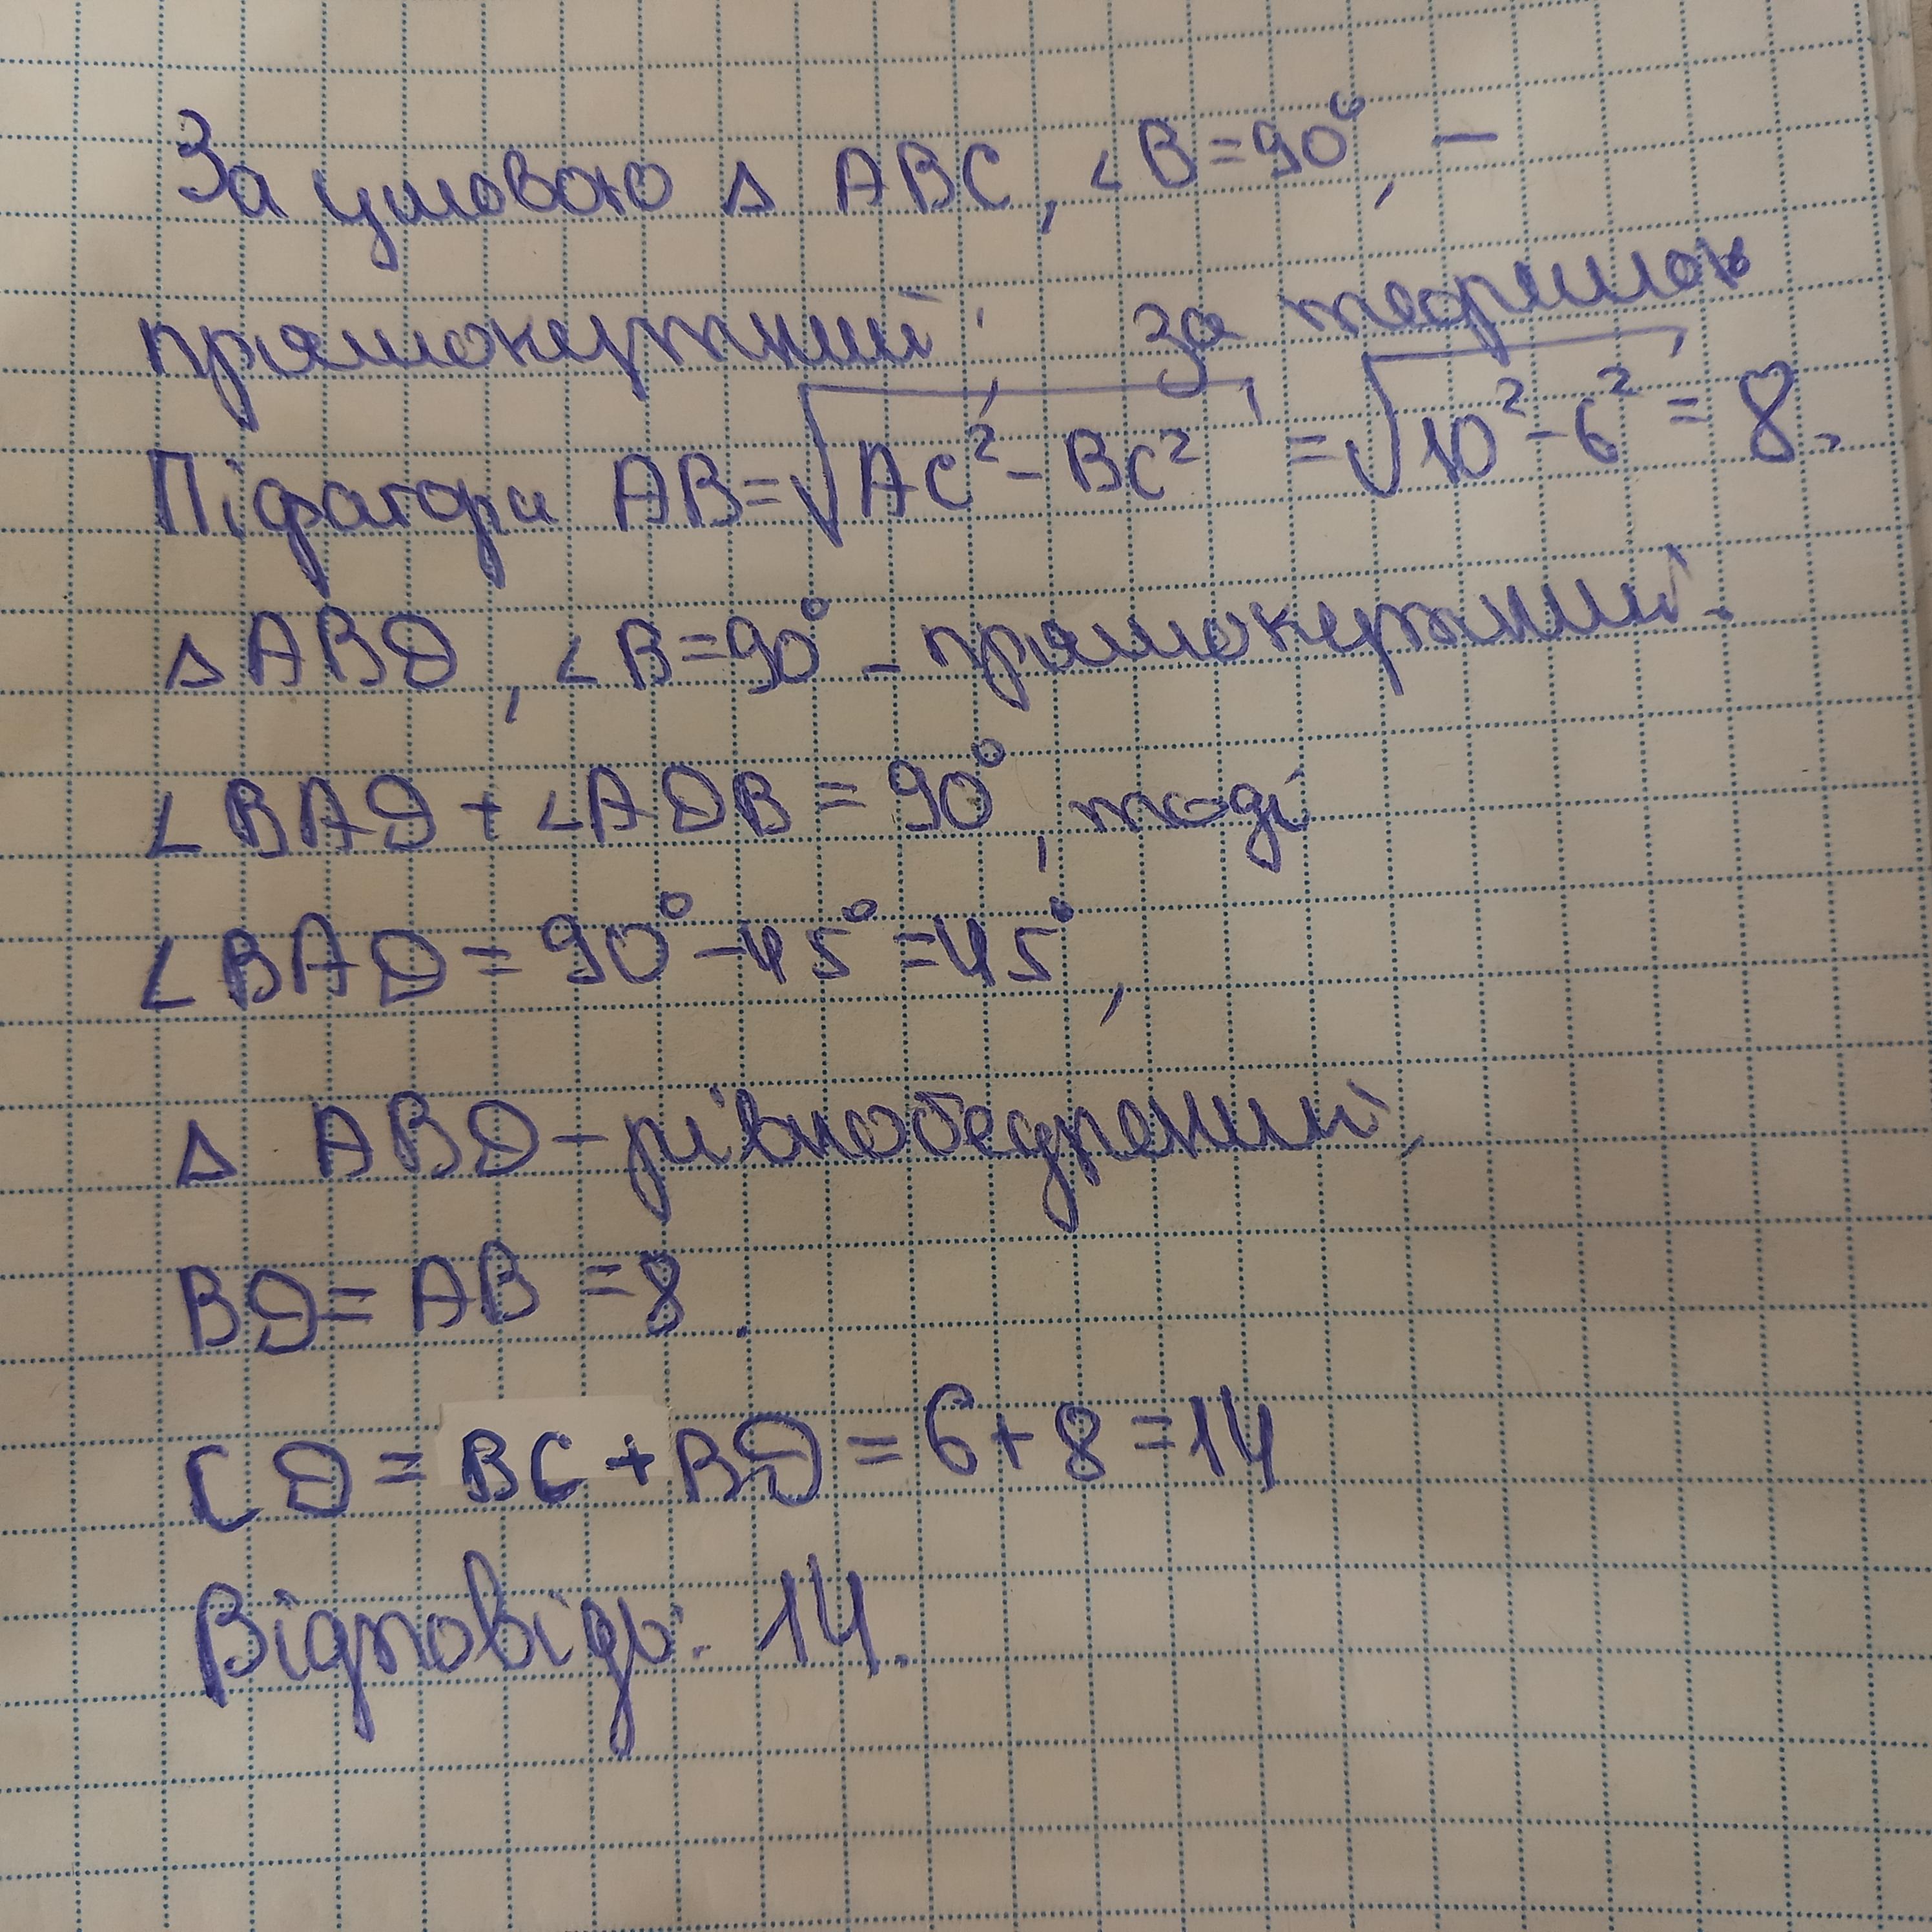 За умовою △ ABC, ∠B=90°, –
прямокутний; за теоремою
Піфагора AB=√AC²-BC² =√10²-6² = 8.
△ABD, ∠B=90° - прямокутний.
∠BAD + ∠ADB = 90°, тоді
∠BAD = 90°-45°=45°,
△ ABD - рівнобедрений,
BD= AB =8.
CD = BC + BD = 6+8=14
Відповідь: 14.